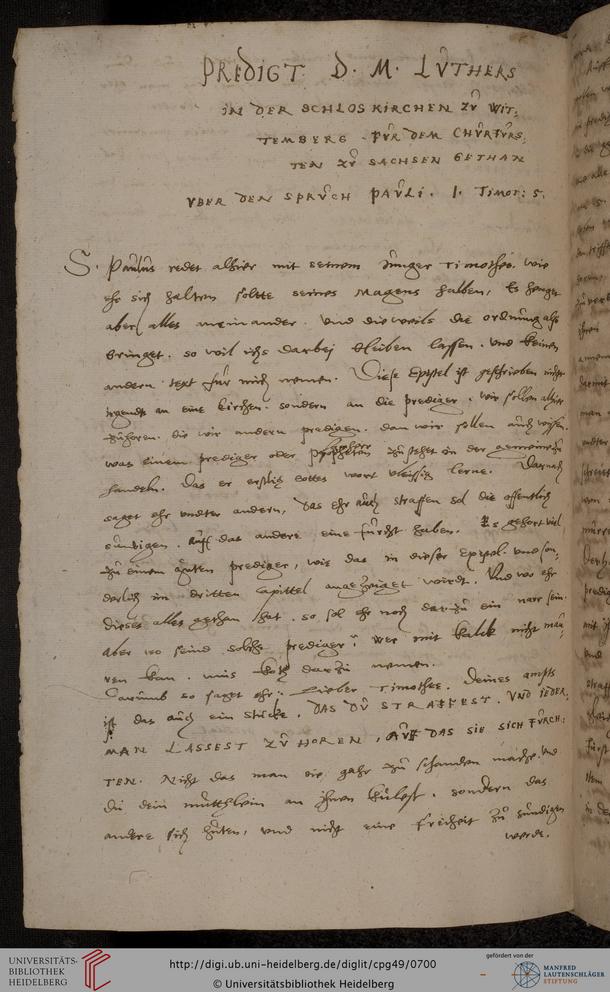 PREDIGT D. M. LVTHERS
IN DER SCHLOSKIRCHEN ZŮ WIT:
TEMBERG. FŮR DEM CHŮRFŮRS:
TEN ZŮ SACHSEN GETHAN
VBER DEN SPRŮCH PAŮLI. I. TIMOT: 5.
S. Paůlůs redet alhier mit seinem Jůnger Timotheo. wie
ehr sich halten soltte seines Magens halben, Es henget
aber alles aneinander. Vnd dieweils die ordnůng also
bringet. so wil ichs darbej bleiben lassen. vnd keinen
andern text fůr mich nemen. Diese Epistel ist geschrieben nicht
irgendt an eine kirchen. sondern an die prediger. wir sollen alhier
zůhoren. die wir andern predigen. dan wir sollen aůch wissen.
was einem prediger oder zů stehet in der gemeine zů
handeln. Das er erstlich Gottes wort vleissig lerne. Darnach
saget ehr vndter andern, das ehr aůch straffen sol die offentlich
sůndigen. aůff das andere eine fůrcht haben. Es gehort viel
zů einem gůten prediger, wie das in dieser Epistel. vnd son,
derlich im dritten Capittel angezeiget wirdt. Vnd wo ehr
dieses alles gethan hat. so sol ehr noch darzů ein narr sein.
aber wo seind solche prediger? wer mit kalck nicht maů,
ren kan. můs koth darzů nemen.
Darůmb so saget ehr: Lieber Timothee. Deines ampts
ist das aůch ein stůcke. DAS DŮ STRAFFEST. VND IEDER,
MAN LASSEST ZŮ HOREN, AŮFF DAS SIE SICH FŮRCH:
TEN. Nicht das man sie gahr zů schanden mache. Vnd
dů dein můtthlein an ihnen kůlest. sondern das
andere sich hůten, vnd nicht eine freiheit zů sůndigen
werde.
UNIVERSITÄTS-
BIBLIOTHEK
HEIDELBERG
http://digi.ub.uni-heidelberg.de/diglit/cpg49/0700
© Universitätsbibliothek Heidelberg
gefördert von der
MANFRED
LAUTENSCHLÄGER
STIFTUNG